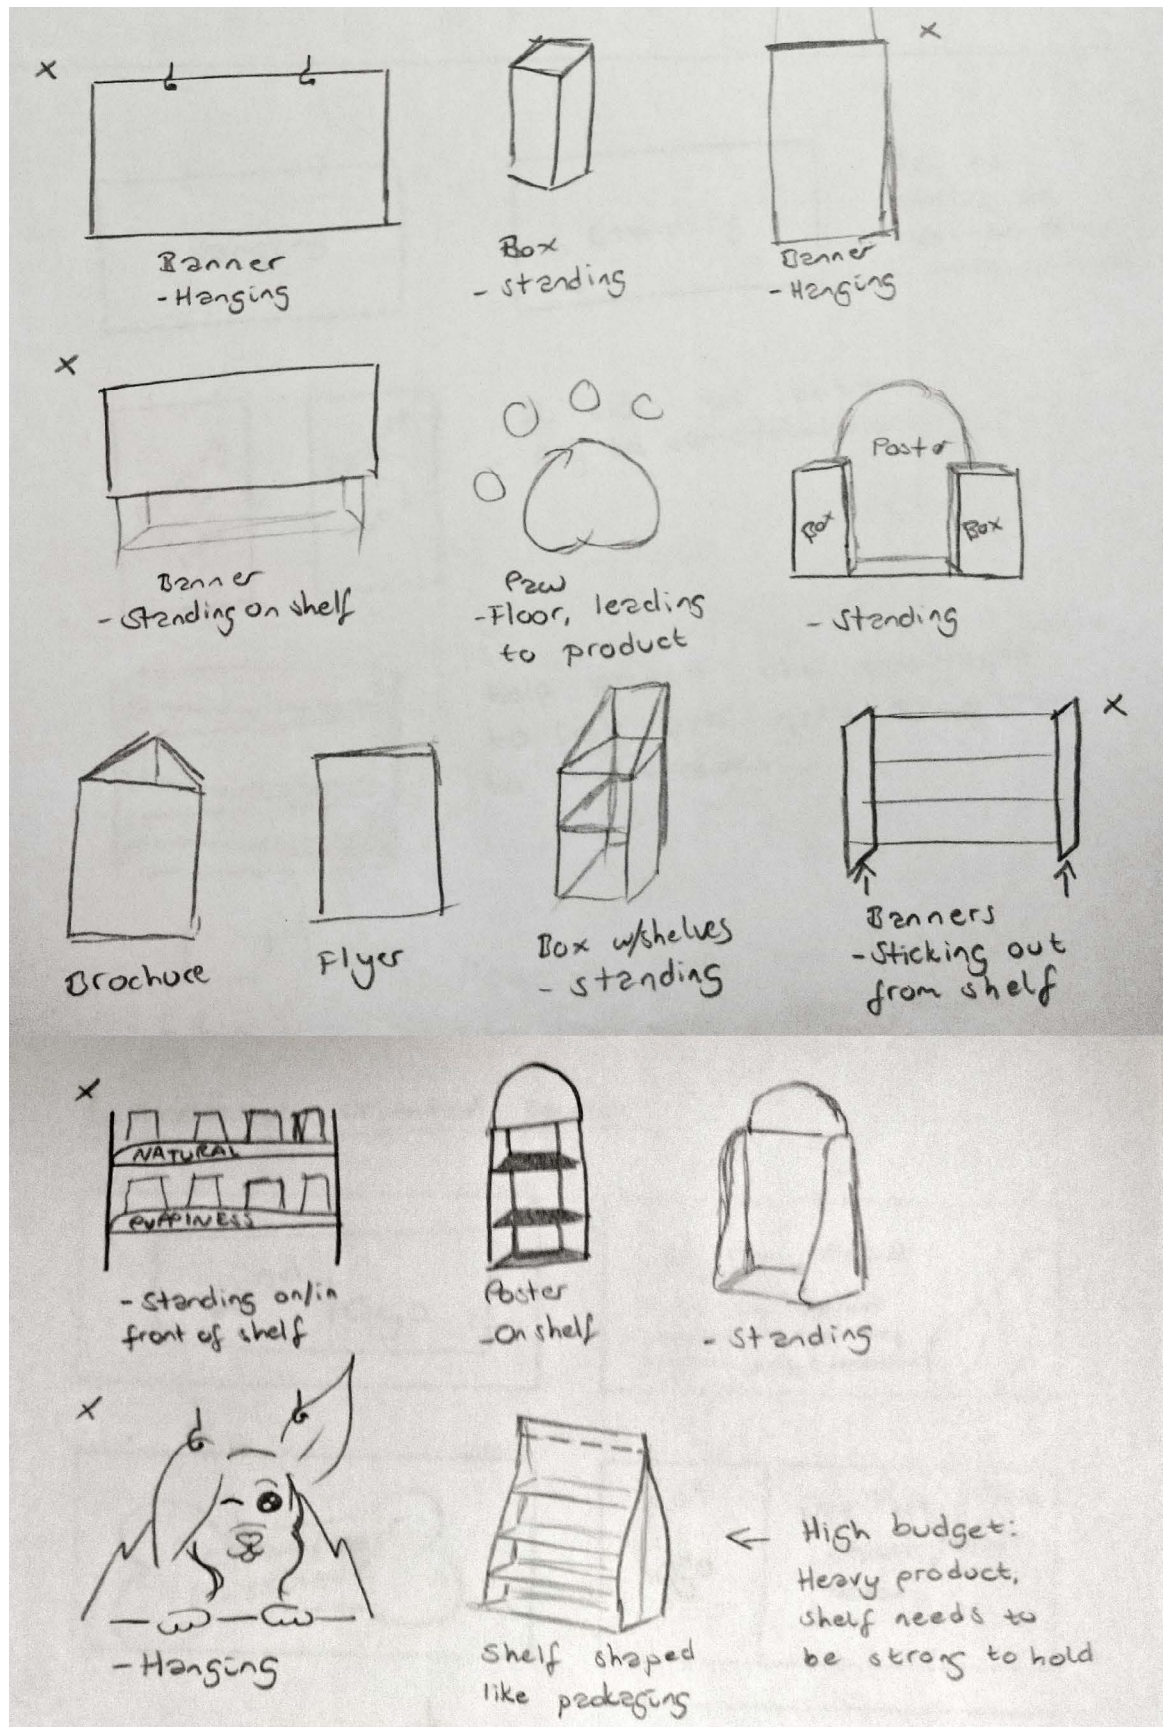 x
Banner
- Hanging
Box
- standing
x
Banner
- Hanging
x
Banner
- Standing on shelf
Paw
- Floor, leading
to product
Poster
Box
Box
- Standing
Brochure
Flyer
Box w/shelves
- standing
x
Banners
- Sticking out
from shelf
x
NATURAL
PUPPINESS
- Standing on/in
front of shelf
Poster
- On shelf
- Standing
x
- Hanging
Shelf shaped
like packaging
← High budget:
Heavy product,
shelf needs to
be strong to hold